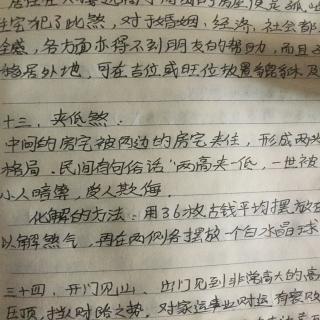 住宅犯了此煞，对于婚姻、经济、社会都
全感，各方面亦得不到朋友的帮助，而且
移居外地，可在吉位或旺位放置
十三、夹低煞．
中间的房宅被两边的房宅夹住，形成两
格局．民间有句俗话"两高夹一低，一世被
小人暗算，受人欺侮．
化解的方法：用36枚古钱平均摆放在
以解煞气，再在两侧各摆放一个白水晶球
三十四、开门见山．出门见到非常高大的高
压顶，挡人财路之势．对家运事业财运